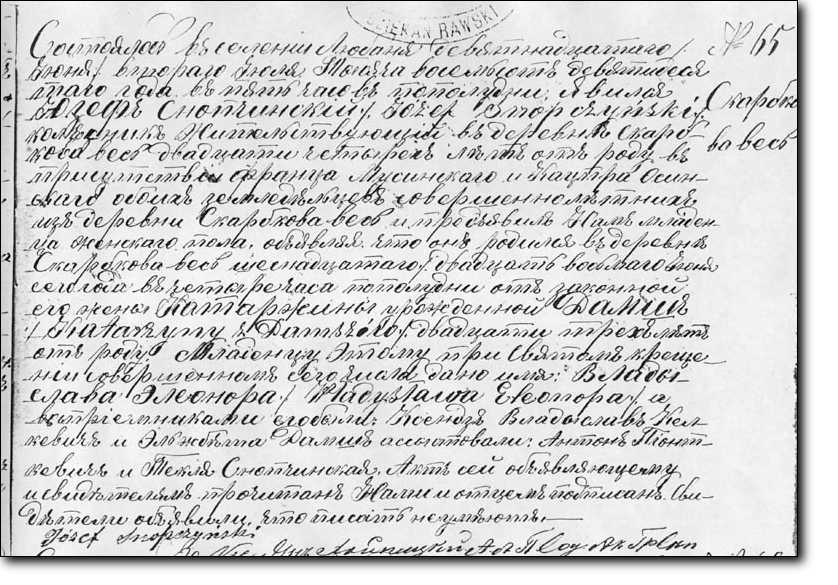 DZIEKAN RAWSKI
Состоялось въ селеніи Любаня девятнадцатаго /
№ 65
Іюня / втораго Іюля Тысяча восемьсотъ девятидеся
таго года въ пять часовъ пополудни, явился
Іосефъ Снопчинскій / Józef Snopczyński /
Скарбко
коморникъ жительствующій въ деревнѣ Скарб-
ва весь
кова весь двадцати четырехъ лѣтъ отъ роду въ
присутствіи Франца Мусинскаго и Каспра Осин-
скаго обоихъ земледѣльцевъ совершеннолѣтнихъ
изъ деревни Скарбкова весь и предъявилъ Намъ младен-
ца женскаго пола, объявляя что онъ родился въ деревнѣ
Скарбкова весь шеснадцатаго / двадцать восьмаго Іюня
сего года въ четыре часа пополудни отъ законной
его жены Катаржины урожденной Дамшъ
/ Katarzyny z / двадцати трехъ лѣтъ
отъ роду. Младенцу этому при Святомъ креще-
ніи совершенномъ сего числа дано имя: Влады-
слава Элеонора / Władysława Eleonora / а
воспріемниками его были: Ксендзъ Владыславъ Кел-
кевичъ и Эльжбѣта Дамшъ ассистовали: Антонъ Піонт-
кевичъ и Текля Снопчинская. Актъ сей объявляющему
и свидѣтелямъ прочитанъ Нами и отцемъ подписанъ. Сви-
дѣтели объявили, что писать не умѣютъ.
Józef Snopczyński